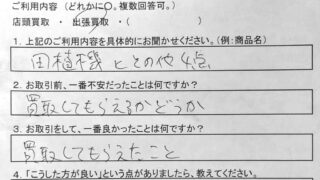 ご利用内容 （どれかに○。複数回答可。）
店頭買取 ・ 出張買取 ・（ ）
1. 上記のご利用内容を具体的にお聞かせください。（例：商品名）
田植機とその他4点
2. お取引前、一番不安だったことは何ですか？
買取してもらえるかどうか
3. お取引をして、一番良かったことは何ですか？
買取してもらえたこと
4. 「こうした方が良い」という点がありましたら、教えてください。